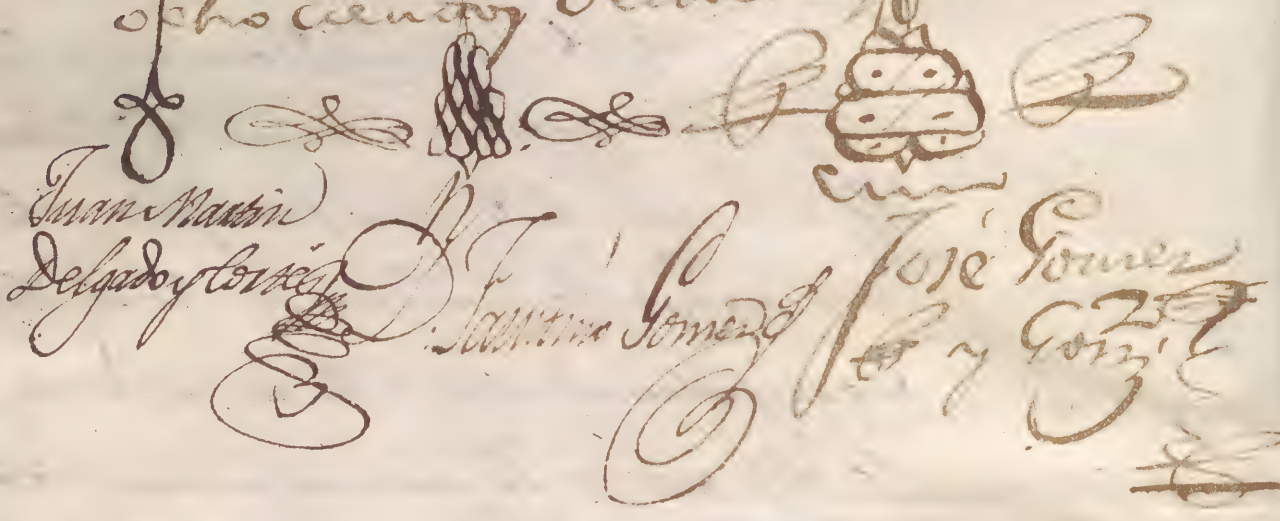 ocho cientos
Juan Martin
Delgado y Cortés
D. Faustino Gomez
José Gomez
y Gonz